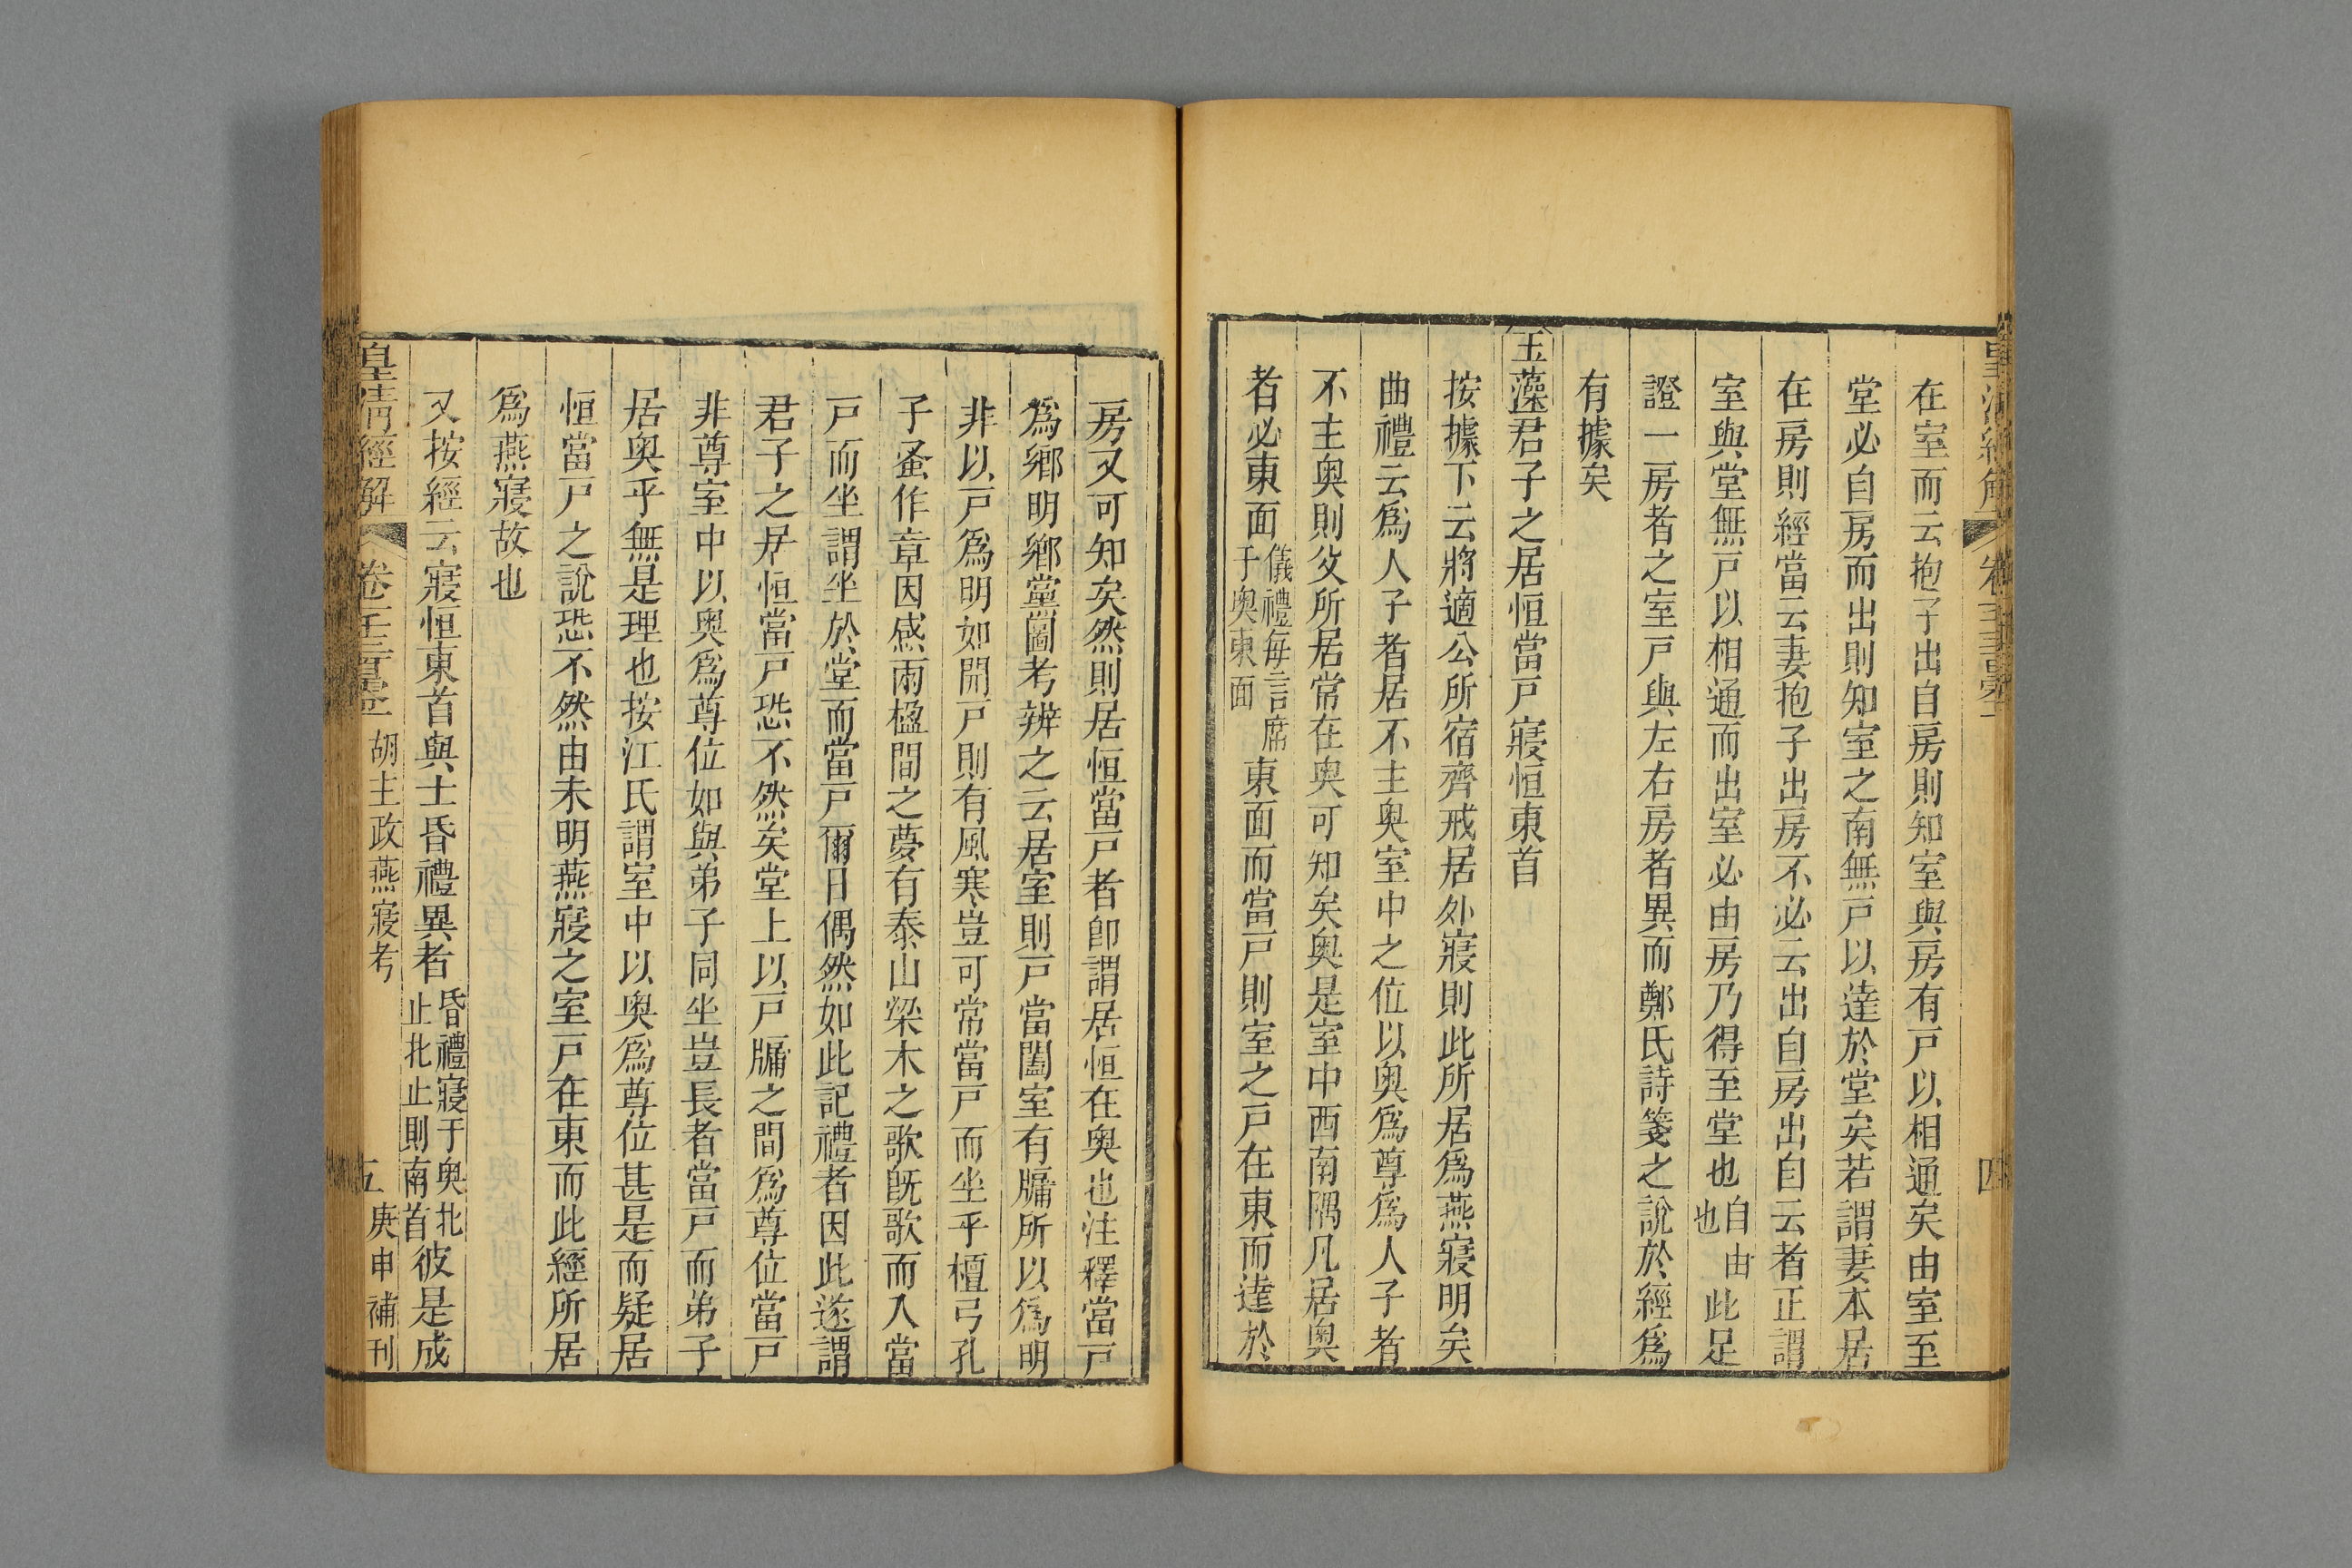 在室而云抱子出自房則知室與房有戸以相通矣由室至
堂必自房而出則知室之南無戸以達於堂矣若謂妻本居
在房則經當云妻抱子出房不必云出自房出自云者正謂
室與堂無戸以相通而出室必由房乃得至堂也自由也此足
證一房者之室戸與左右房者異而鄭氏詩箋之說於經爲
有據矣
玉藻君子之居恒當戸寢恒東首
按據下云將適公所宿齊戒居外寢則此所居爲燕寢明矣
曲禮云爲人子者居不主奧室中之位以奧爲尊爲人子者
不主奧則父所居常在奧可知矣奧是室中西南隅凡居奧
者必東面儀禮每言席于奧東面東面而當戸則室之戸在東而達於
房又可知矣然則居恒當戸者卽謂居恒在奧也注釋當戸
爲鄉明鄉黨圖考辨之云居室則戸當闔室有牖所以爲明
非以戸爲明如開戸則有風寒豈可常當戸而坐乎檀弓孔
子蚤作章因感兩楹間之夢有泰山梁木之歌旣歌而入當
戸而坐謂坐於堂而當戸爾日偶然如此記禮者因此遂謂
君子之居恒當戸恐不然矣堂上以戸牖之間爲尊位當戸
非尊室中以奧爲尊位如與弟子同坐豈長者當戸而弟子
居奧乎無是理也按江氏謂室中以奧爲尊位甚是而疑居
恒當戸之說恐不然由未明燕寢之室戸在東而此經所居
爲燕寢故也
又按經云寢恒東首與士昏禮異者昏禮寢于奧北止北止則南首彼是成
皇清經解 卷一千三百零二 胡主政燕寢考 五 庚申補刊